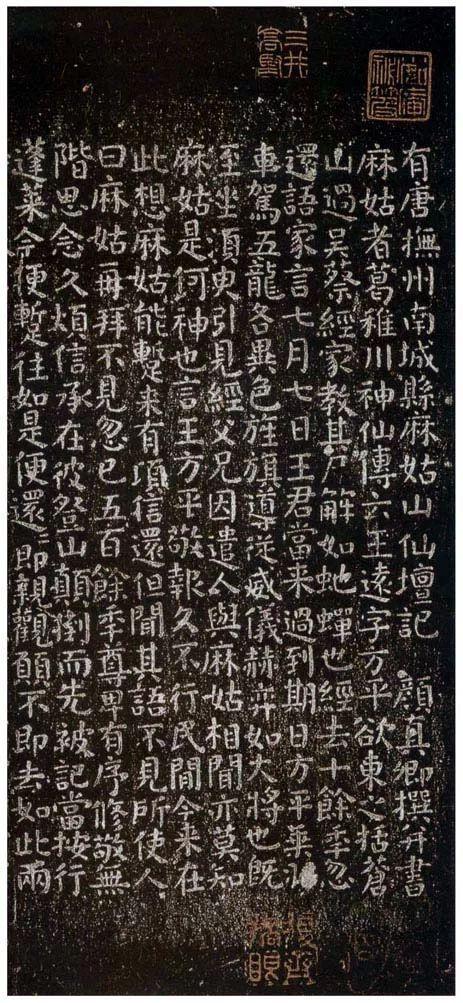 三井高堅
有唐撫州南城縣麻姑山仙壇記 顏真卿撰并書
麻姑者葛稚川神仙傳云王遠字方平欲東之括蒼
山過吳蔡經家教其尸解如虵蟬也經去十餘季忽
還語家言七月七日王君當來過到期日方平乘羽
車駕五龍各異色旌旗導從威儀赫弈如大將也既
至坐須臾引見經父兄因遣人與麻姑相聞亦莫知
麻姑是何神也言王方平敬報久不行民間今来在
此想麻姑能蹔来有頃信還但聞其語不見所使人
曰麻姑再拜不見忽已五百餘季尊卑有序修敬無
階思念久煩信承在彼登山顛倒而先被記當按行
蓬萊今便蹔往如是便還〻即親觀願不即去如此兩